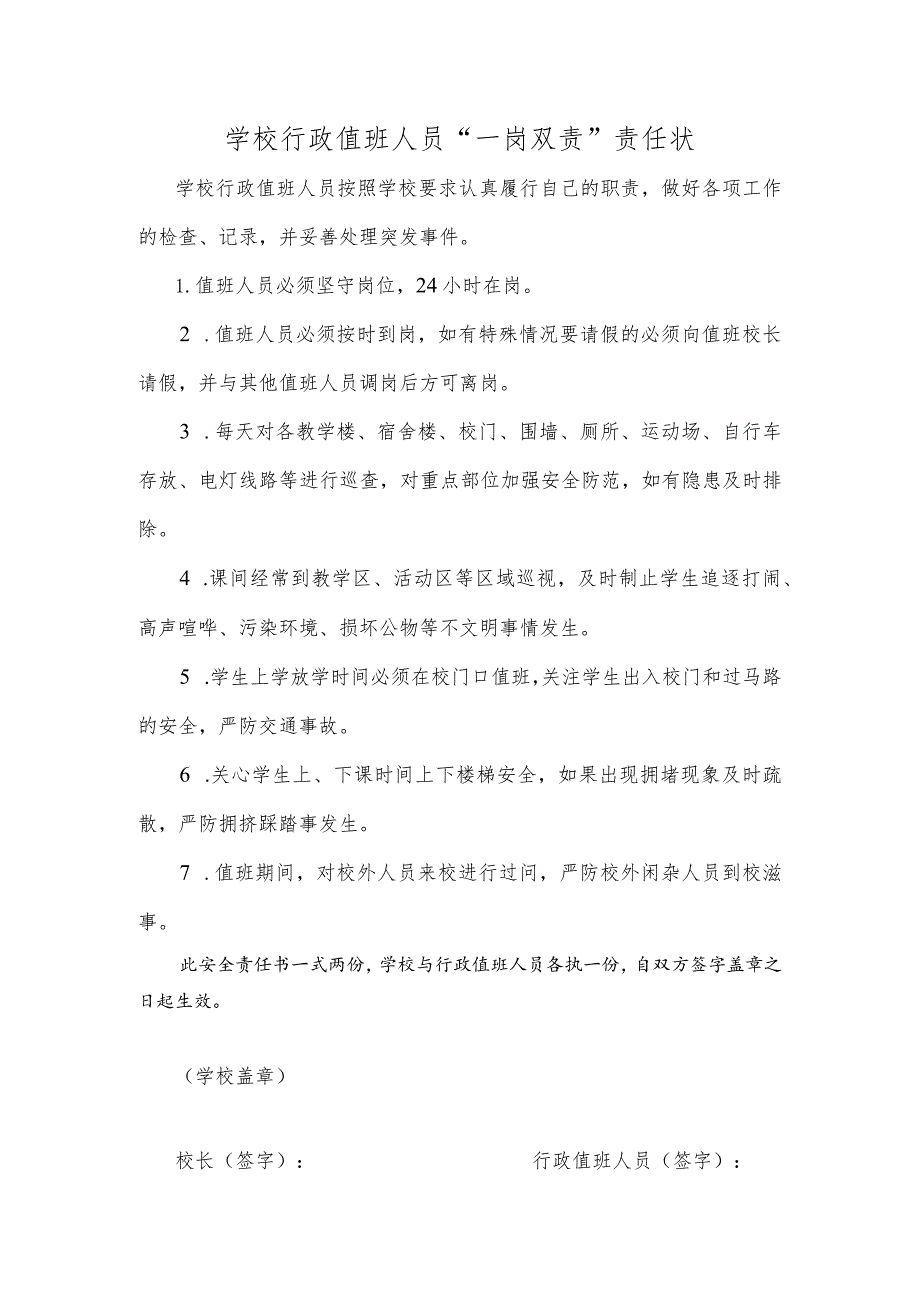 学校行政值班人员“一岗双责”责任状
学校行政值班人员按照学校要求认真履行自己的职责，做好各项工作
的检查、记录，并妥善处理突发事件。
1.值班人员必须坚守岗位，24小时在岗。
2 .值班人员必须按时到岗，如有特殊情况要请假的必须向值班校长
请假，并与其他值班人员调岗后方可离岗。
3 .每天对各教学楼、宿舍楼、校门、围墙、厕所、运动场、自行车
存放、电灯线路等进行巡查，对重点部位加强安全防范，如有隐患及时排
除。
4 .课间经常到教学区、活动区等区域巡视，及时制止学生追逐打闹、
高声喧哗、污染环境、损坏公物等不文明事情发生。
5 .学生上学放学时间必须在校门口值班，关注学生出入校门和过马路
的安全，严防交通事故。
6 .关心学生上、下课时间上下楼梯安全，如果出现拥堵现象及时疏
散，严防拥挤踩踏事发生。
7 .值班期间，对校外人员来校进行过问，严防校外闲杂人员到校滋
事。
此安全责任书一式两份，学校与行政值班人员各执一份，自双方签字盖章之
日起生效。
（学校盖章）
校长（签字）： 行政值班人员（签字）：